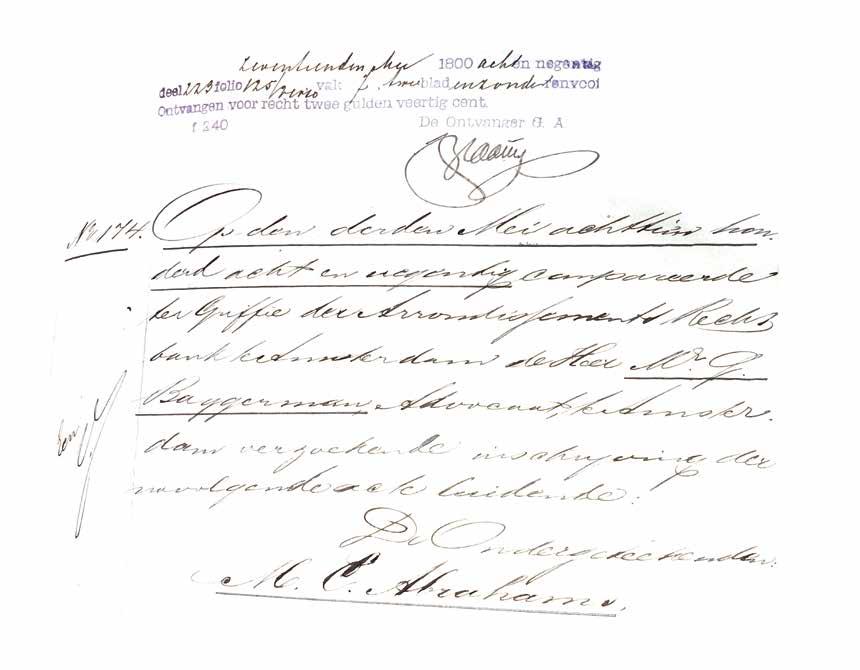 zeventienden Mei 1800 acht en negentig
deel 223 folio 125 verso vak 8, twee blad en zonder renvooi
Ontvangen voor recht twee gulden veertig cent.
f 240 De Ontvanger G. A
No 174. Op den derden Mei achttien hon-
derd acht en negentig compareerde
ter Griffie der Arrondissements Recht
bank te Amsterdam de Heer Mr. G.
Baggerman, Advocaat, te Amster-
dam verzoekende inschrijving der
navolgende acte luidende:
De Ondergeteekenden:
M. C. Abrahams,